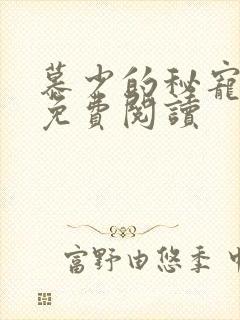 慕少的秘寵
免費閱讀
富野由悠季 中